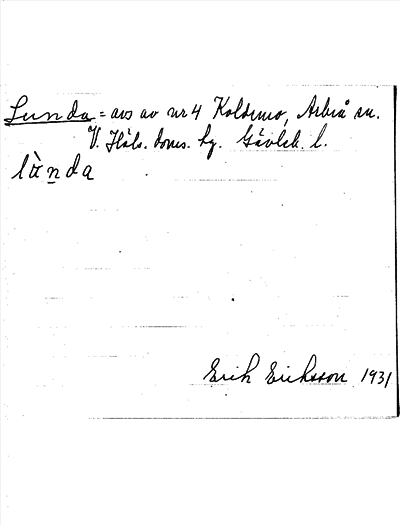 Lunda = avs av nr 4 Koldemo, Arbrå sn.
V. Häls. doms. hg. Gävleb. l.
lùn̲da
Erik Eriksson 1931